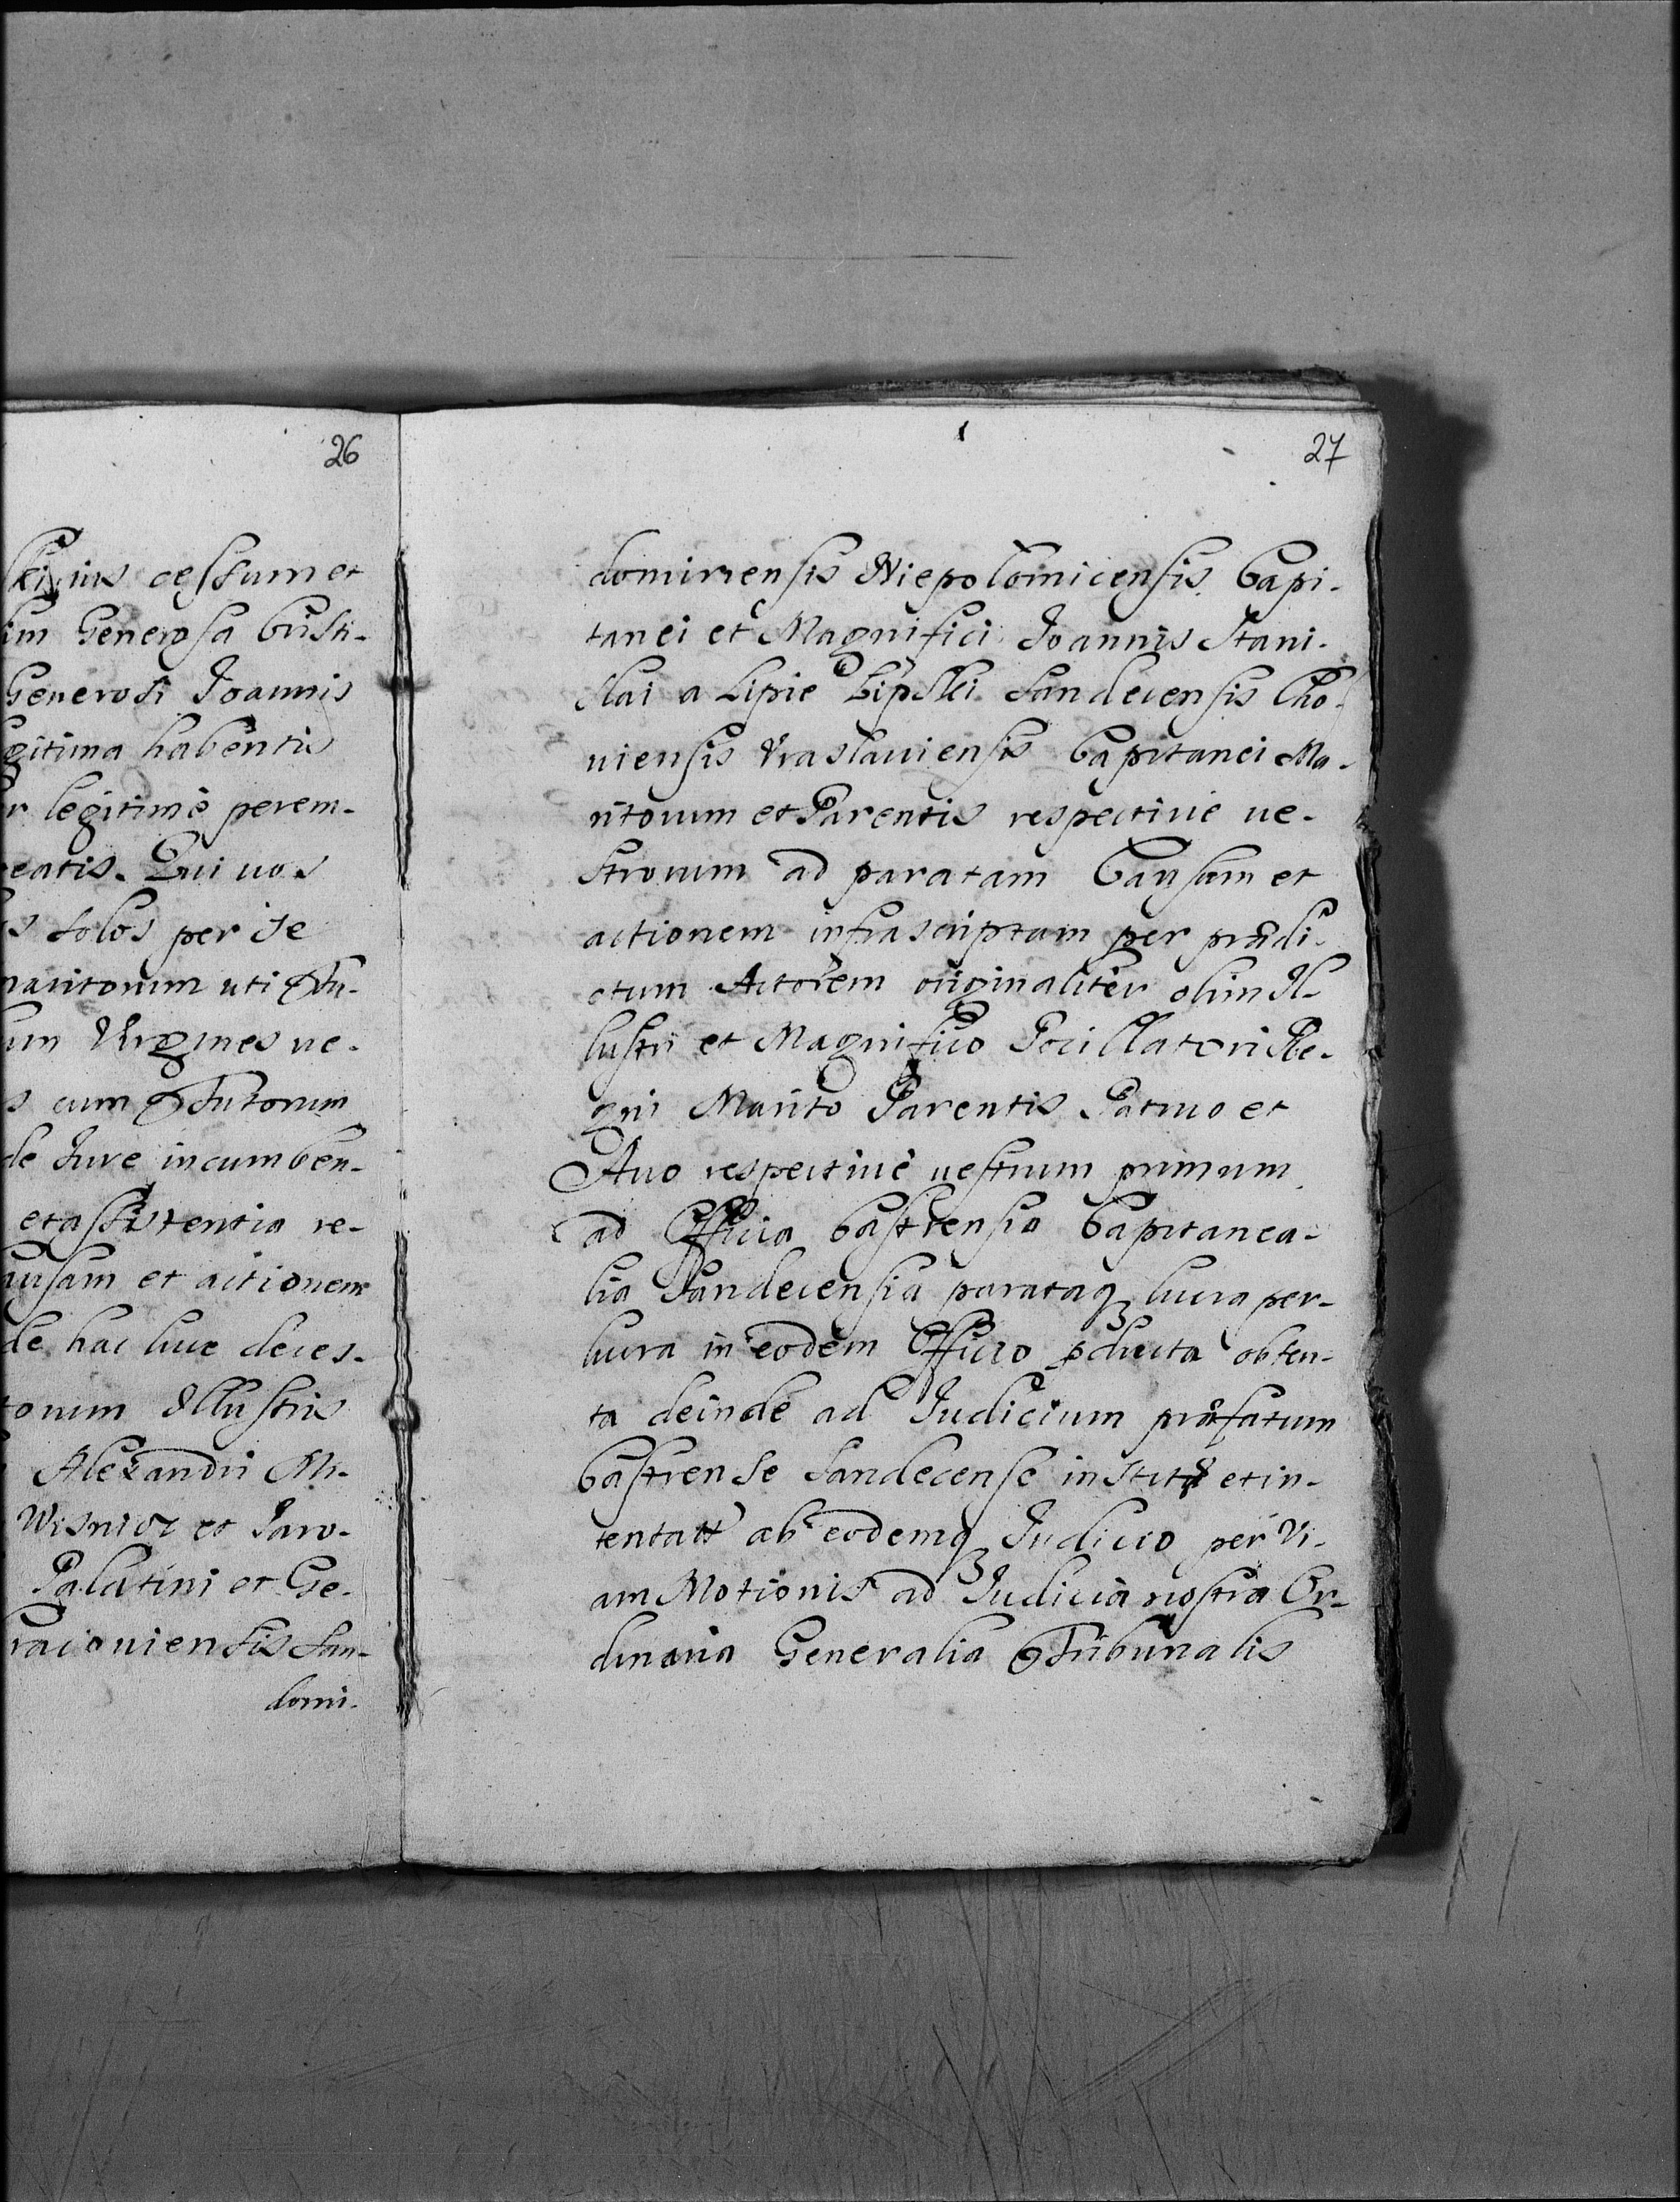 26
ius cessum et
im Generosa Cristi-
Generosi Joannis
gitima habentis
r legitimè perem-
eatis. Qui uos
s solos per se
maritorum uti Tu-
um Virgines ue-
s cum Tutorum
de Jure incumben-
et assistentia re-
ausam et actionem
de hac luce deces-
torum Illustris
Alexandri Mi-
Wisnicz et Jaro-
Palatini et Ge-
racouiensis San-
domi-
27
domiriensis Niepolomicensis Capi-
tanei et Magnifici Joannis Stani-
slai a Lipie Lipski Sandecensis Cho-
uiensis Vraslauiensis Capitanei Ma-
ritorum et Parentis respectiuè ue-
strorum ad paratam Causam et
actionem infrascriptam per prædi-
ctum Actorem originaliter olim Il-
lustri et Magnifico Pocillatori Re-
gni Marito Parentis Patruo et
Auo respectiuè uestrum primum
ad Officia Castrensia Capitanea-
lia Sandecensia parataq lucra per-
lucra in eodem Officio pducta obten-
ta deinde ad Judicium præfatum
Castrense Sandecense instit et in-
tentatt ab eodemq Judicio per Vi-
am Motionis ad Judicia nostra Or-
dinaria Generalia Tribunalis